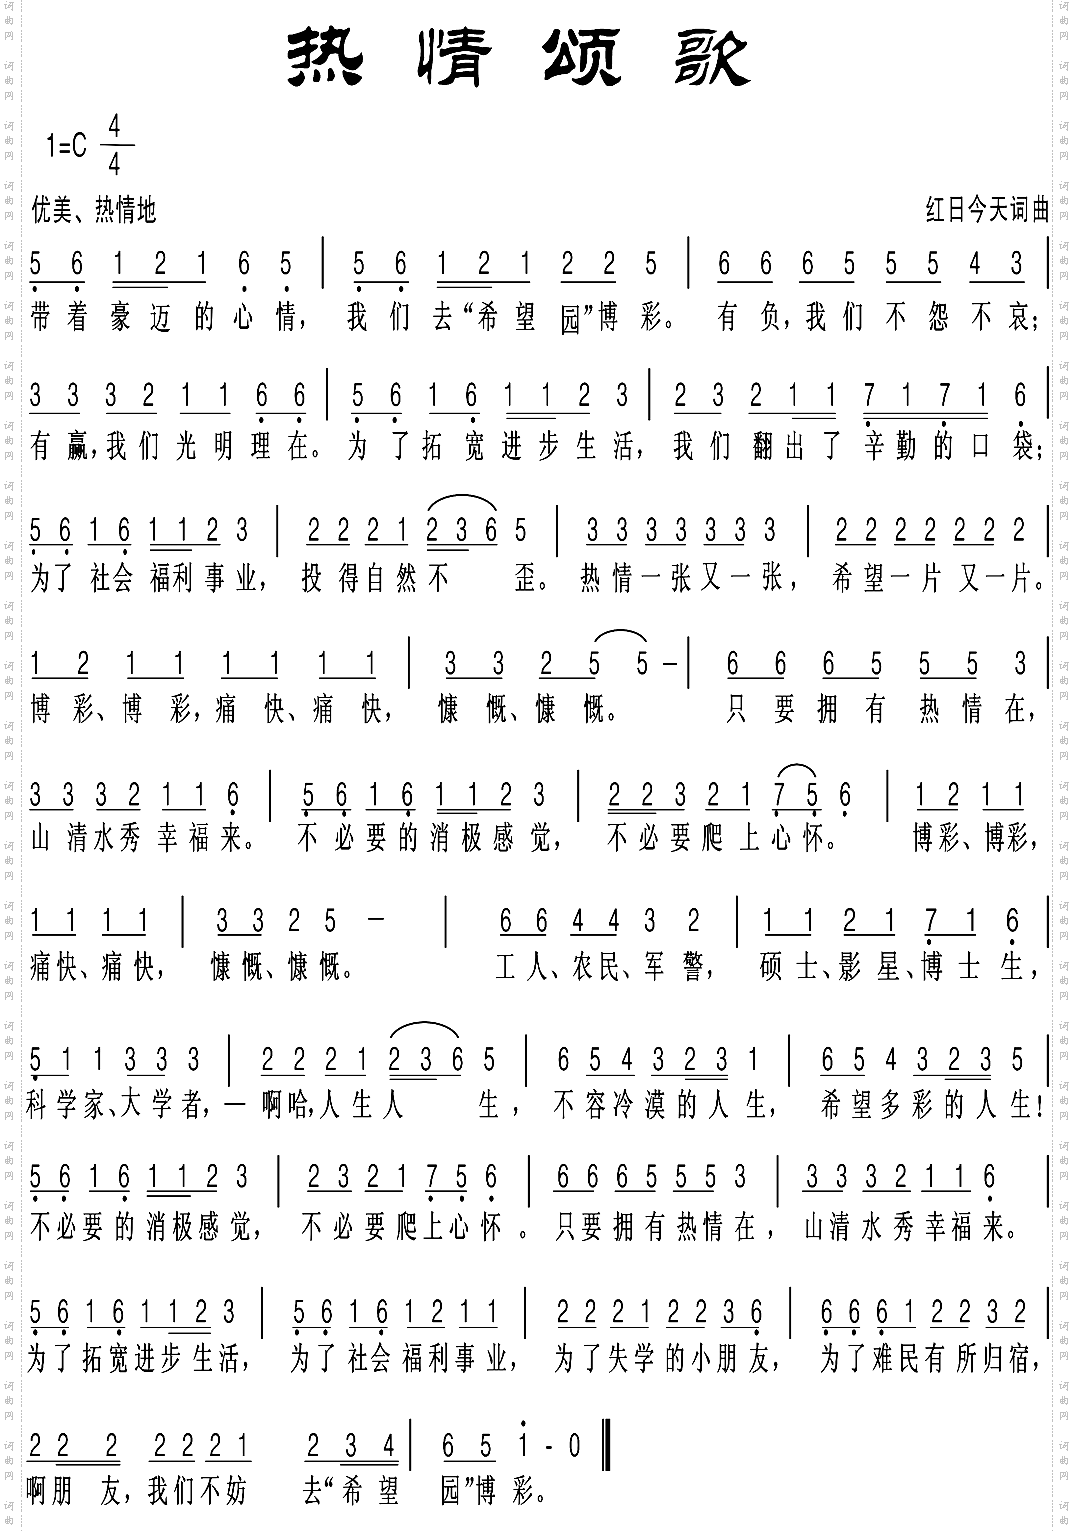 热情颂歌
1=C 4/4
优美、热情地 红日今天词曲
5 6 1 2 1 6 5 | 5 6 1 2 1 2 2 5 | 6 6 6 5 5 5 4 3 |
带着豪迈的心情，我们去“希望园”博彩。有负，我们不怨不哀；
3 3 3 2 1 1 6 6 | 5 6 1 6 1 1 2 3 | 2 3 2 1 1 7 1 7 1 6 |
有赢，我们光明理在。为了拓宽进步生活，我们翻出了辛勤的口袋；
5 6 1 6 1 1 2 3 | 2 2 2 1 2 3 6 5 | 3 3 3 3 3 3 3 | 2 2 2 2 2 2 2 |
为了社会福利事业，投得自然不歪。热情一张又一张，希望一片又一片。
1 2 1 1 1 1 1 1 | 3 3 2 5 5 – | 6 6 6 5 5 5 3 |
博彩、博彩，痛快、痛快，慷慨、慷慨。只要拥有热情在，
3 3 3 2 1 1 6 | 5 6 1 6 1 1 2 3 | 2 2 3 2 1 7 5 6 | 1 2 1 1
山清水秀幸福来。不必要的消极感觉，不必要爬上心怀。博彩、博彩，
1 1 1 1 | 3 3 2 5 – | 6 6 4 4 3 2 | 1 1 2 1 7 1 6 |
痛快、痛快，慷慨、慷慨。工人、农民、军警，硕士、影星、博士生，
5 1 1 3 3 3 | 2 2 2 1 2 3 6 5 | 6 5 4 3 2 3 1 | 6 5 4 3 2 3 5 |
科学家、大学者，一啊哈，人生人生，不容冷漠的人生，希望多彩的人生！
5 6 1 6 1 1 2 3 | 2 3 2 1 7 5 6 | 6 6 6 5 5 5 3 | 3 3 3 2 1 1 6 |
不必要的消极感觉，不必要爬上心怀。只要拥有热情在，山清水秀幸福来。
5 6 1 6 1 1 2 3 | 5 6 1 6 1 2 1 1 | 2 2 2 1 2 2 3 6 | 6 6 6 1 2 2 3 2 |
为了拓宽进步生活，为了社会福利事业，为了失学的小朋友，为了难民有所归宿，
2 2 2 2 2 2 1 2 3 4 | 6 5 1 - 0
啊朋友，我们不妨去“希望园”博彩。